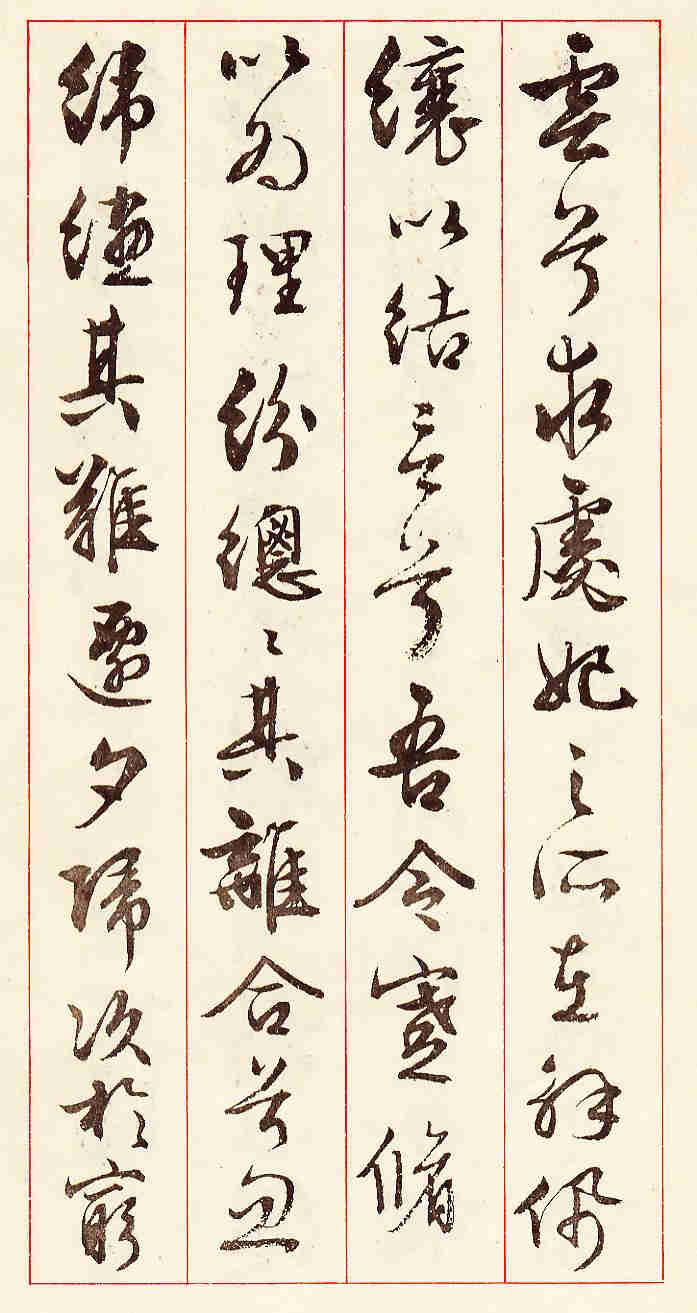 雲兮求處妃之所在解佩
纕以結言兮吾令蹇脩
以為理紛總〻其離合兮忽
緯繣其難遷夕歸次於窮